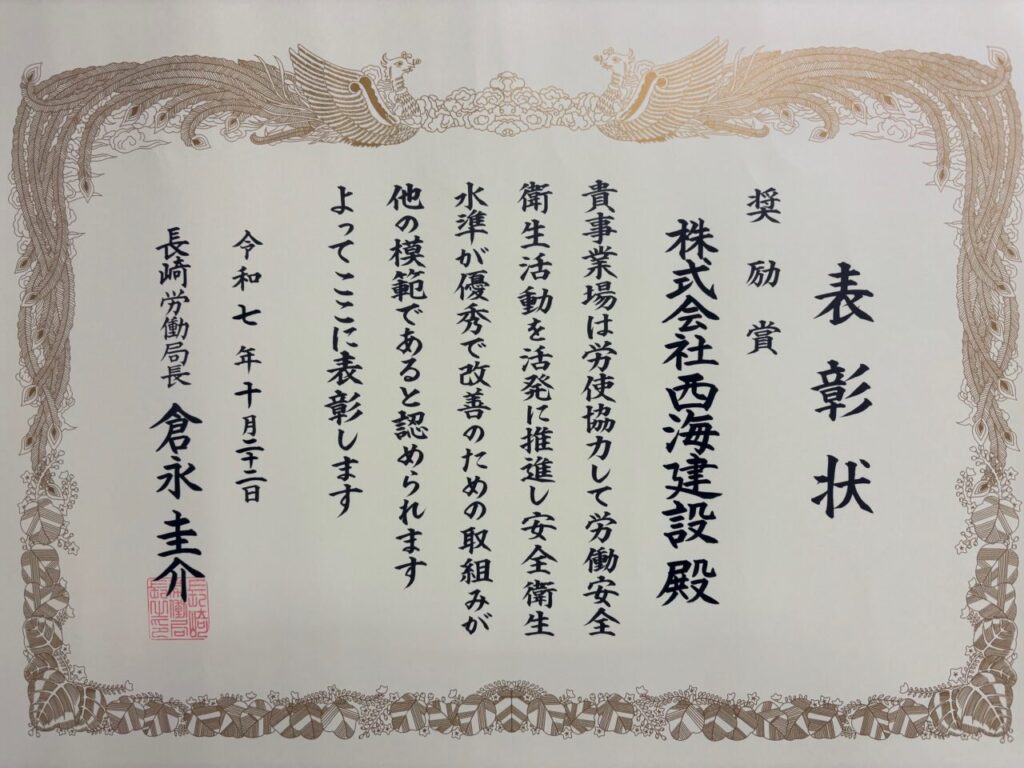 表彰状
奨励賞
株式会社西海建設 殿
貴事業場は労使協力して労働安全
衛生活動を活発に推進し安全衛生
水準が優秀で改善のための取組みが
他の模範であると認められます
よってここに表彰します
令和七年十月二十二日
長崎労働局長 倉永圭介